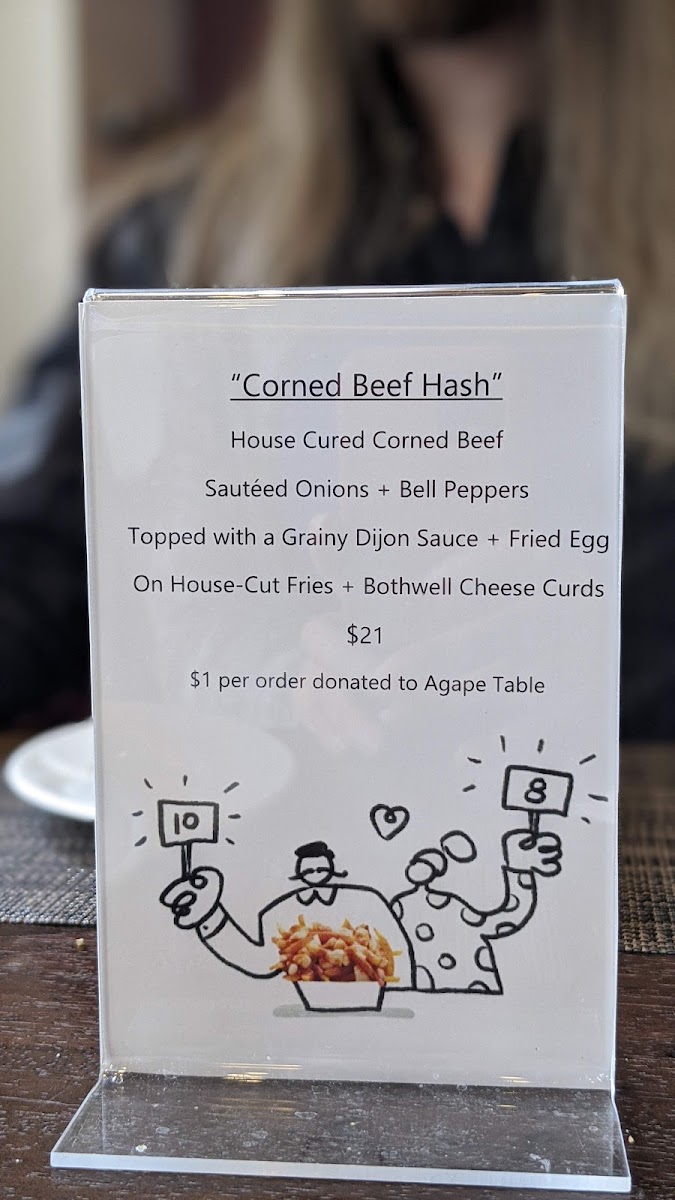 “Corned Beef Hash”
House Cured Corned Beef
Sautéed Onions + Bell Peppers
Topped with a Grainy Dijon Sauce + Fried Egg
On House-Cut Fries + Bothwell Cheese Curds
$21
$1 per order donated to Agape Table
10
8